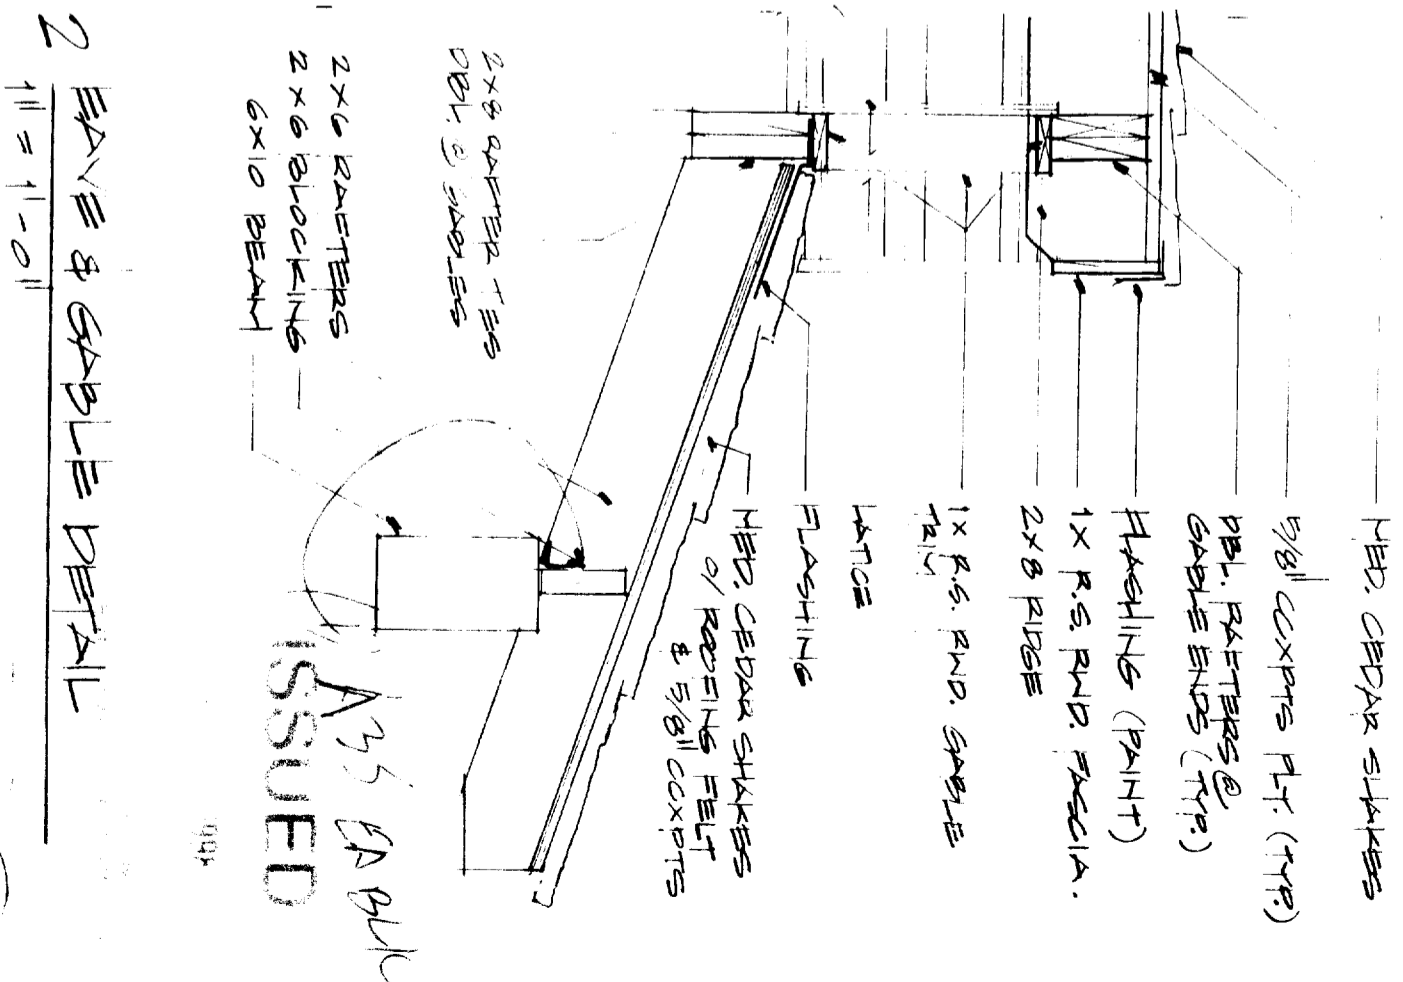 MED. CEDAR SHAKES
5/8" CCXPTS PLY. (TYP.)
DBL. RAFTERS @
GABLE ENDS (TYP.)
FLASHING (PAINT)
1X R.S. RWD. FASCIA.
2X8 RIDGE
1X R.S. RWD. GABLE
TRIM
LATICE
FLASHING
MED. CEDAR SHAKES
O/ ROOFING FELT
& 5/8" CCXPTS
2X8 RAFTER TIES
DBL. @ GABLES
2X6 RAFTERS
2X6 BLOCKING
6X10 BEAM
A35 EA BLK
ISSUED
2 EAVE & GABLE DETAIL
1" = 1'-0"